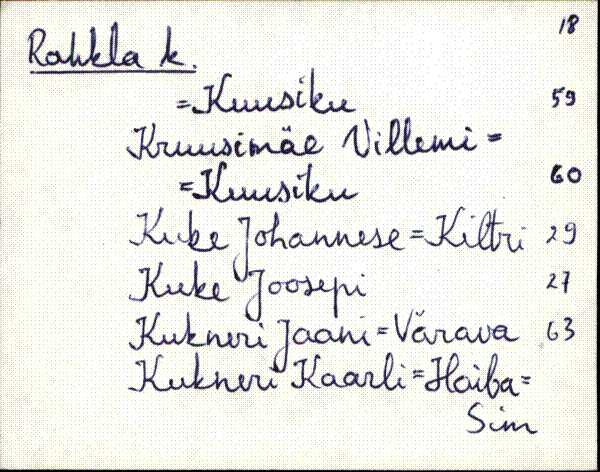 18
Rahkla k.
=Kuusiku 59
Kruusimäe Villemi=
=Kuusiku 60
Kuke Johannese=Kiltri 29
Kuke Joosepi 27
Kukneri Jaani=Värava 63
Kukneri Kaarli=Haiba=
Sim